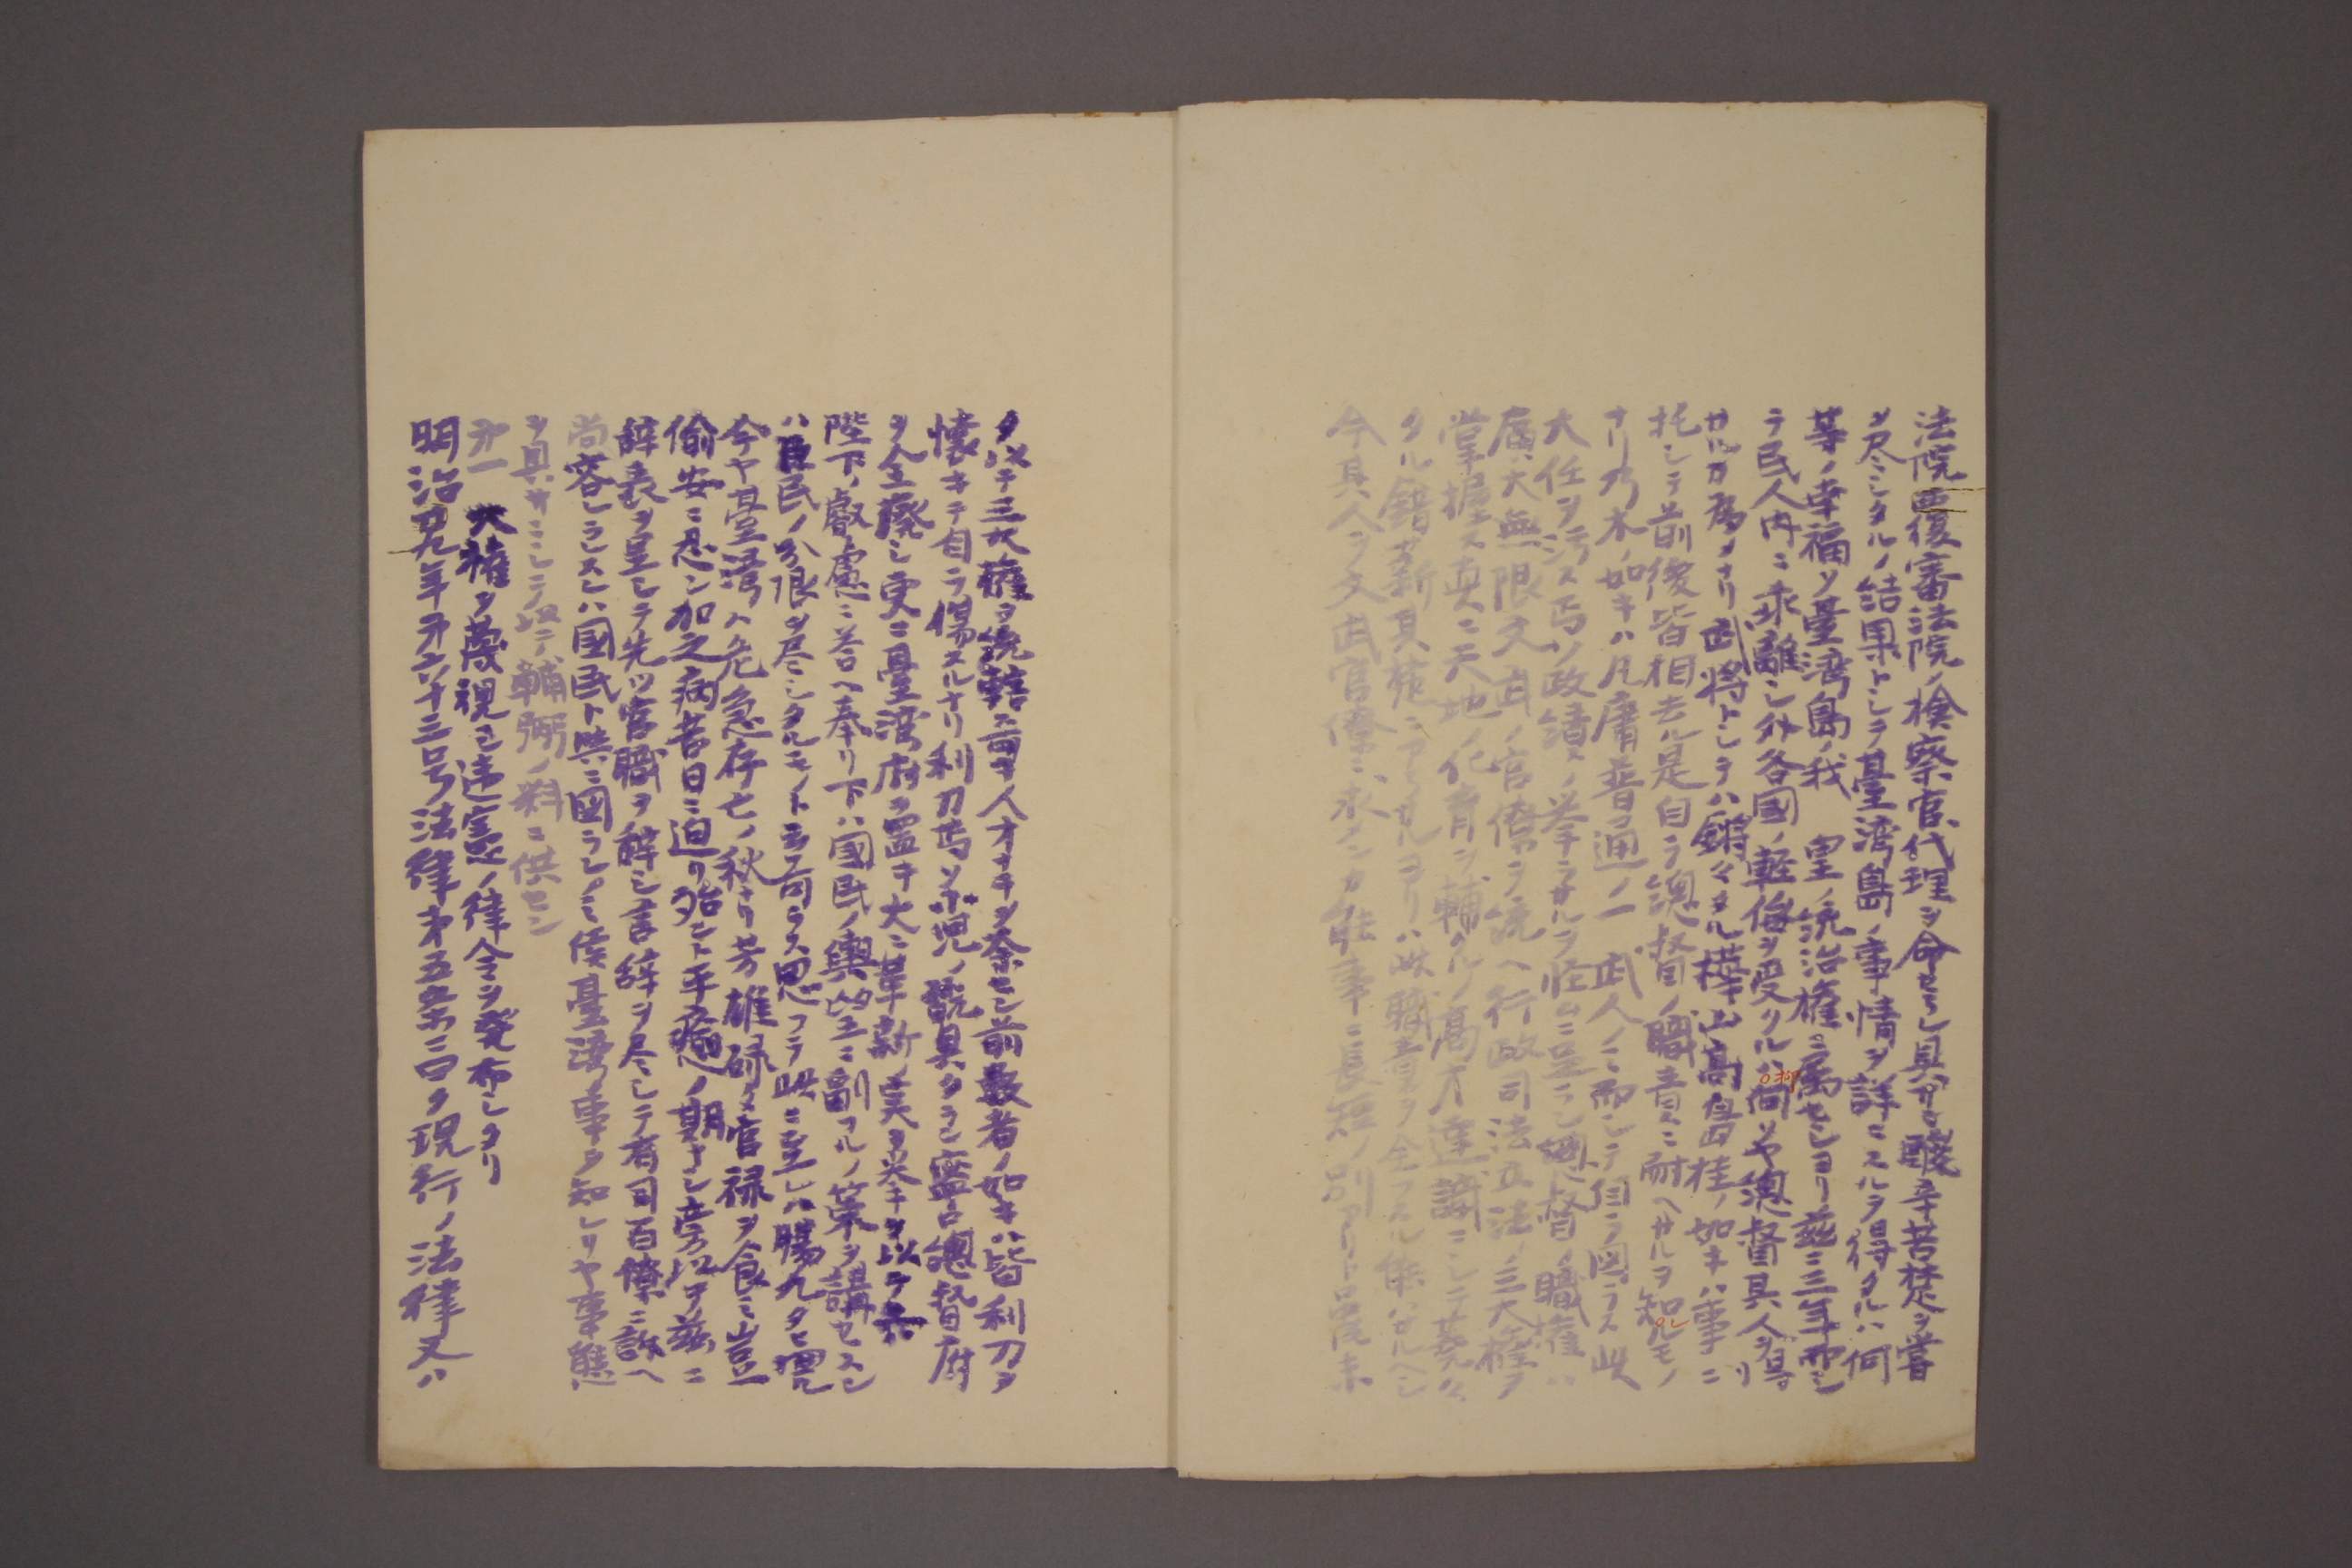 法院覆審法院ノ検察官代理ヲ命セラレ具サニ酸辛苦楚ヲ嘗
メ尽シタルノ結果トシテ臺湾島ノ事情ヲ詳ニスルヲ得タルハ何
等ノ幸福ソ臺湾島ノ我 皇ノ統治権ニ属セシヨリ茲ニ三年而シ
テ民人内ニ乖離シ外各國ノ軽侮ヲ受クルハ何ソヤ總督其人ヲ得
サルカ為メナリ武将トシテハ錚々タル樺山高島桂ノ如キハ事ニ
托シテ前後皆相去ル是自ラ總督ノ職責ニ耐ヘサルヲ知ルモノ
ナリ乃木ノ如キハ凡庸普通ノ一武人ノミ而シテ自ラ図ラス此
大任ヲ汚ス焉ソ政績ノ挙ラサルヲ怪ムニ足ラン總督ノ職権ハ
廣大無限文武ノ官僚ヲ統ヘ行政司法立法ノ三大権ヲ
掌握ス真ニ天地ノ化育ヲ輔クルノ高才達識ニシテ蹇々
タル錯節其捷ニアラサルヨリハ此職責ヲ全フスル能ハサルヘシ
今其人ヲ文武官僚ニ求メンカ能事ニ長短ノ別アリト虽未
タ以テ三大権ヲ統轄ス可キ人才ナキヲ奈セン前数者ノ如キハ皆利刀ヲ
懐キテ自ラ傷スルナリ利刀焉ソ小児ノ翫具タラン寧ロ總督府
ヲ全廃シ更ニ臺湾府ヲ置キ大ニ革新ノ実ヲ挙キヲ以テ
陛下ノ叡慮ニ答ヘ奉リ下ハ國民ノ輿望ニ副フルノ策ヲ講セスン
ハ臣民ノ分限ヲ尽シタルモノト云フ可ラス思フテ此ニ至レハ腸九タヒ回ル
今ヤ臺湾ハ危急存亡ノ秋ナリ芳雄碌々官禄ヲ食ミ豈
偸安ニ忍ン加之病昔日ニ迫リ殆ント平癒ノ期ナシ旁以テ茲ニ
辞表ヲ呈シテ先ツ官職ヲ辞シ言辞ヲ尽シテ有司百僚ニ訴ヘ
尚容レラレスンハ國民ト與ニ図ランノミ后臺湾ノ事ヲ知レリヤ事態
ヲ具サニシテ以テ輔弼ノ料ニ供セン
第一 大権ヲ蔑視シ違憲ノ律令ヲ発布シタリ
明治廿九年第六十三号法律第五条ニ曰ク現行ノ法律又ハ